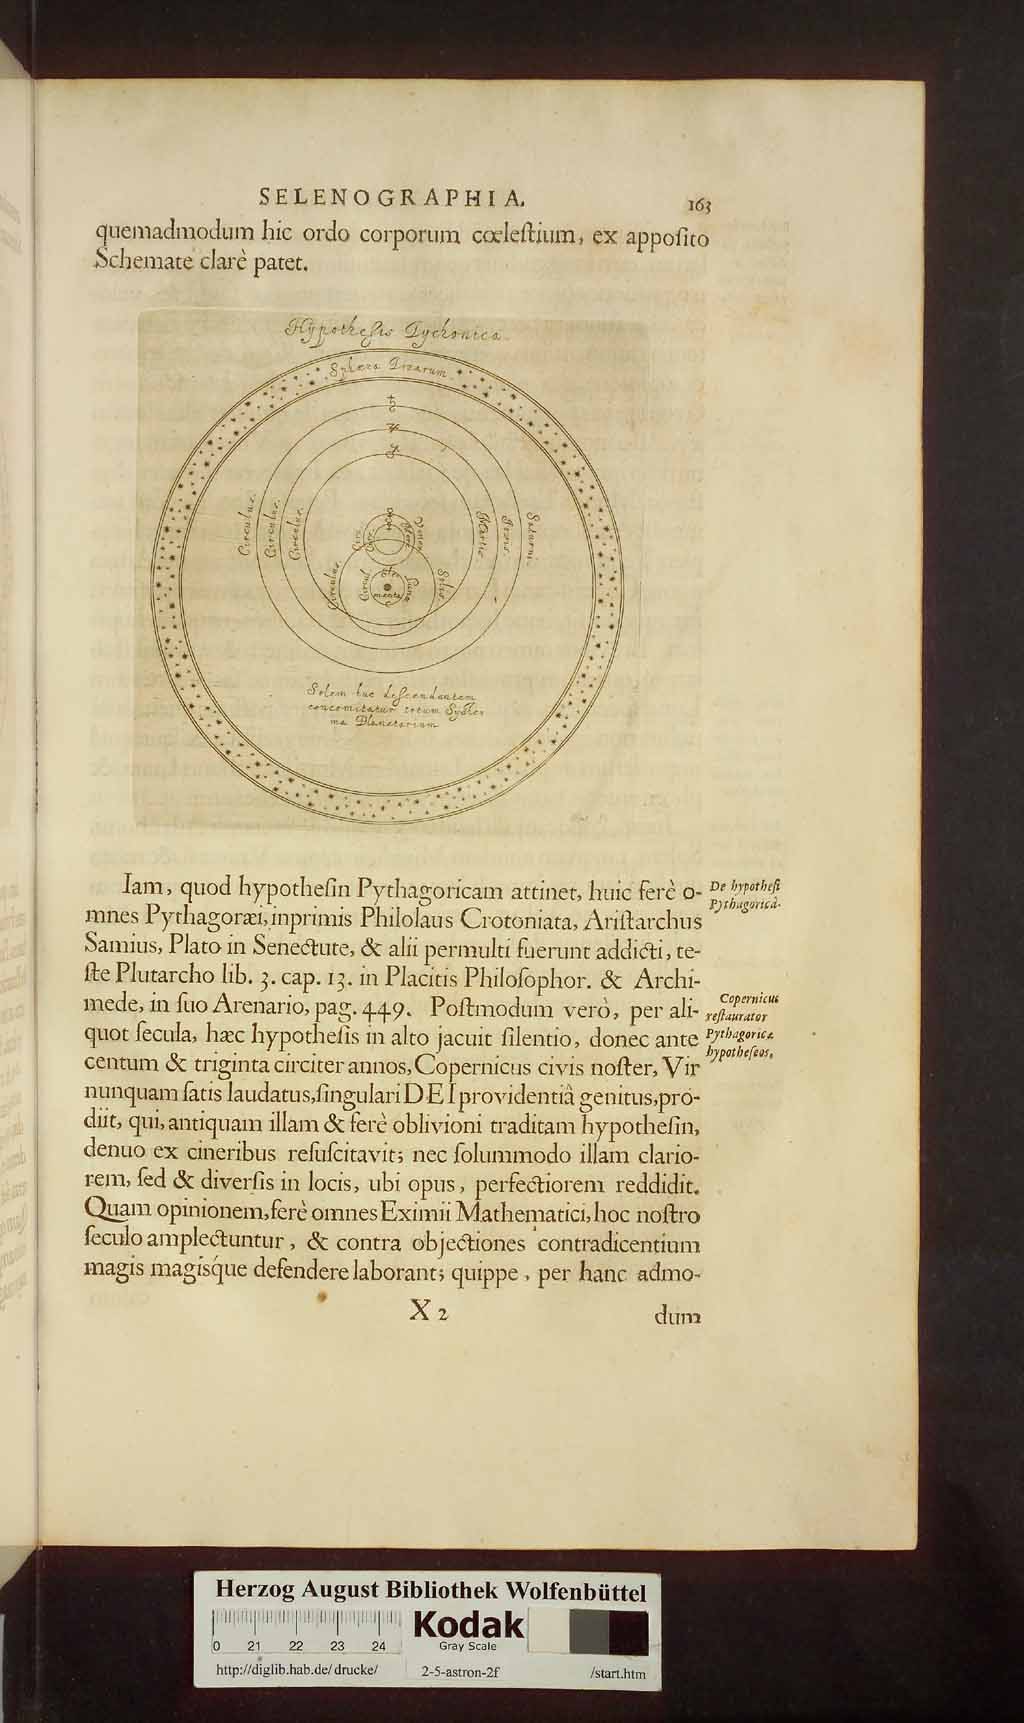 SELENOGRAPHIA.
163
quemadmodum hic ordo corporum cœleſtium, ex appoſito
Schemate clarè patet.
Hypotheſis Tychonica.
Sphæra Fixarum
♄
♃
♂
Circulus.
Circulus.
Circulus.
Martis.
Jovis.
Saturni.
Circulus.
Solis
Circul
Lunæ
Solem huc deſcendentem
concomitatur totum Syſte
ma Planetarium
Iam, quod hypotheſin Pythagoricam attinet, huic ferè o-
mnes Pythagoræi, inprimis Philolaus Crotoniata, Ariſtarchus
Samius, Plato in Senectute, & alii permulti fuerunt addicti, te-
ſte Plutarcho lib. 3. cap. 13. in Placitis Philoſophor. & Archi-
mede, in ſuo Arenario, pag. 449. Poſtmodum verò, per ali-
quot ſecula, hæc hypotheſis in alto jacuit ſilentio, donec ante
centum & triginta circiter annos, Copernicus civis noſter, Vir
nunquam ſatis laudatus, ſingulari DEI providentiâ genitus, pro-
diit, qui, antiquam illam & ferè oblivioni traditam hypotheſin,
denuo ex cineribus reſuſcitavit; nec ſolummodo illam clario-
rem, ſed & diverſis in locis, ubi opus, perfectiorem reddidit.
Quam opinionem, ferè omnes Eximii Mathematici, hoc noſtro
ſeculo amplectuntur, & contra objectiones contradicentium
magis magisque defendere laborant; quippe, per hanc admo-
De hypotheſi
Pythagoricâ.
Copernicus
reſtaurator
Pythagoricæ
hypotheſeos.
X 2
dum
Herzog August Bibliothek Wolfenbüttel
0 21 22 23 24
Kodak
Gray Scale
http://diglib.hab.de/drucke/ 2-5-astron-2f /start.htm